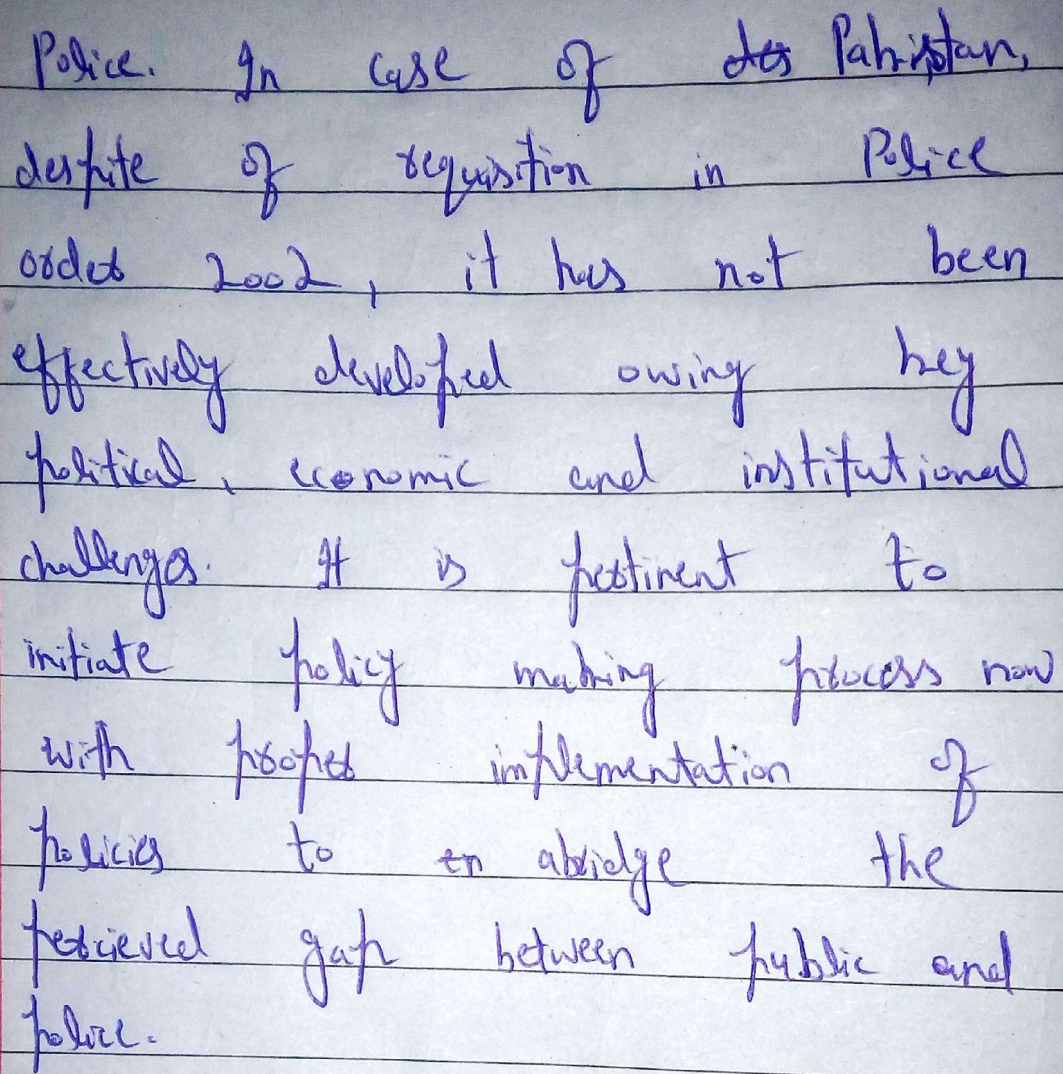 Police. In case of Pakistan,
despite of requisition in Police
order 2002, it has not been
effectively developed owing key
political, economic and institutional
challenges. It is pertinent to
initiate policy making process now
with proper implementation of
policies to en abridge the
percieved gap between public and
police.